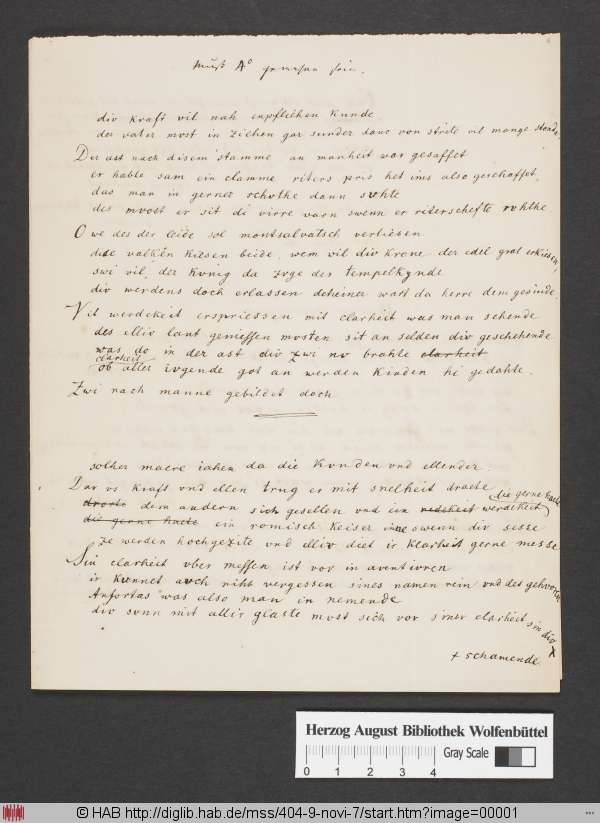 Muß A° gewesen sein.
div kraft vil nah enpflihen kunde
der vater most in ziehen gar sunder danc von strite vil mange stonde
Der ast nach disem stamme an manheit war gesaffet
er hable sam ein clamme riters pris het ims also geschaffet
das man in gerner schvhe dann svhte
des mvost er sit di virre varn swenn er riterschefte rvhthe
O we des der leide sol montsalvatsch verliesen
dise valken kiesen beide, wem wil div krone der edel gral erkiesen,
swi vil, der kvnig da zvge der tempelkynde
div werdens doch erlassen deheiner wart da herre dem gesinde.
Vil werdekeit erspriessen mit clarheit was man sehende
des elliv lant geniessen mosten sit an selden div geschehende
was do in der ast div zwi nv brahte clarheit
clarheit
ob aller ivgende got an werden kinden hi gedahte.
Zwi nach manne gebildet doch
solher maere iahen da die kvnden vnd ellender.
Dar vs kraft vnd ellen trug er mit snelheit draete
die gerne haete
droete dem andern sich gesellen vnd ein redekeit werdekeit
die gerne haete ein romisch keiser inne swenn div sesse
ze werden hochgezite vnd elliv diet ir klarheit gerne messe
Sin clarheit vber messen ist vor in aventivren
ir kvnnet avch niht vergessen sines namen rein vnd des gehvren
Anfortas was also man in nemende
div sonn mit allir glaste most sich vor siner clarheit sin div x
+ schamende.
Herzog August Bibliothek Wolfenbüttel
Gray Scale
0 1 2 3 4
© HAB http://diglib.hab.de/mss/404-9-novi-7/start.htm?image=00001